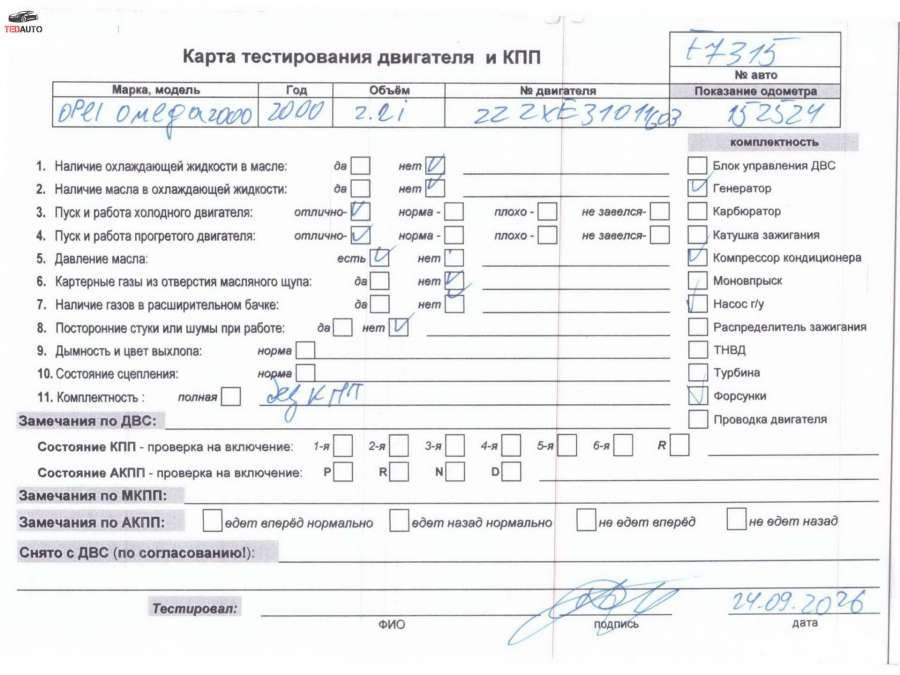 TEDAUTO
Карта тестирования двигателя и КПП
E7315
№ авто
Марка, модель Год Объём № двигателя Показание одометра
OPEL Омega 2000 2000 2.2i Z22XE31011603 152524
комплектность
1. Наличие охлаждающей жидкости в масле: да нет Блок управления ДВС
2. Наличие масла в охлаждающей жидкости: да нет Генератор
3. Пуск и работа холодного двигателя: отлично- норма - плохо - не завелся- Карбюратор
4. Пуск и работа прогретого двигателя: отлично- норма - плохо - не завелся- Катушка зажигания
5. Давление масла: есть нет Компрессор кондиционера
6. Картерные газы из отверстия масляного щупа: да нет Моновпрыск
7. Наличие газов в расширительном бачке: да нет Насос г/у
8. Посторонние стуки или шумы при работе: да нет Распределитель зажигания
9. Дымность и цвет выхлопа: норма ТНВД
10. Состояние сцепления: норма Турбина
11. Комплектность : полная без КПП Форсунки
Замечания по ДВС: Проводка двигателя
Состояние КПП - проверка на включение: 1-я 2-я 3-я 4-я 5-я 6-я R
Состояние АКПП - проверка на включение: P R N D
Замечания по МКПП:
Замечания по АКПП: едет вперёд нормально едет назад нормально не едет вперёд не едет назад
Снято с ДВС (по согласованию!):
Тестировал: 24.09.2026
ФИО подпись дата